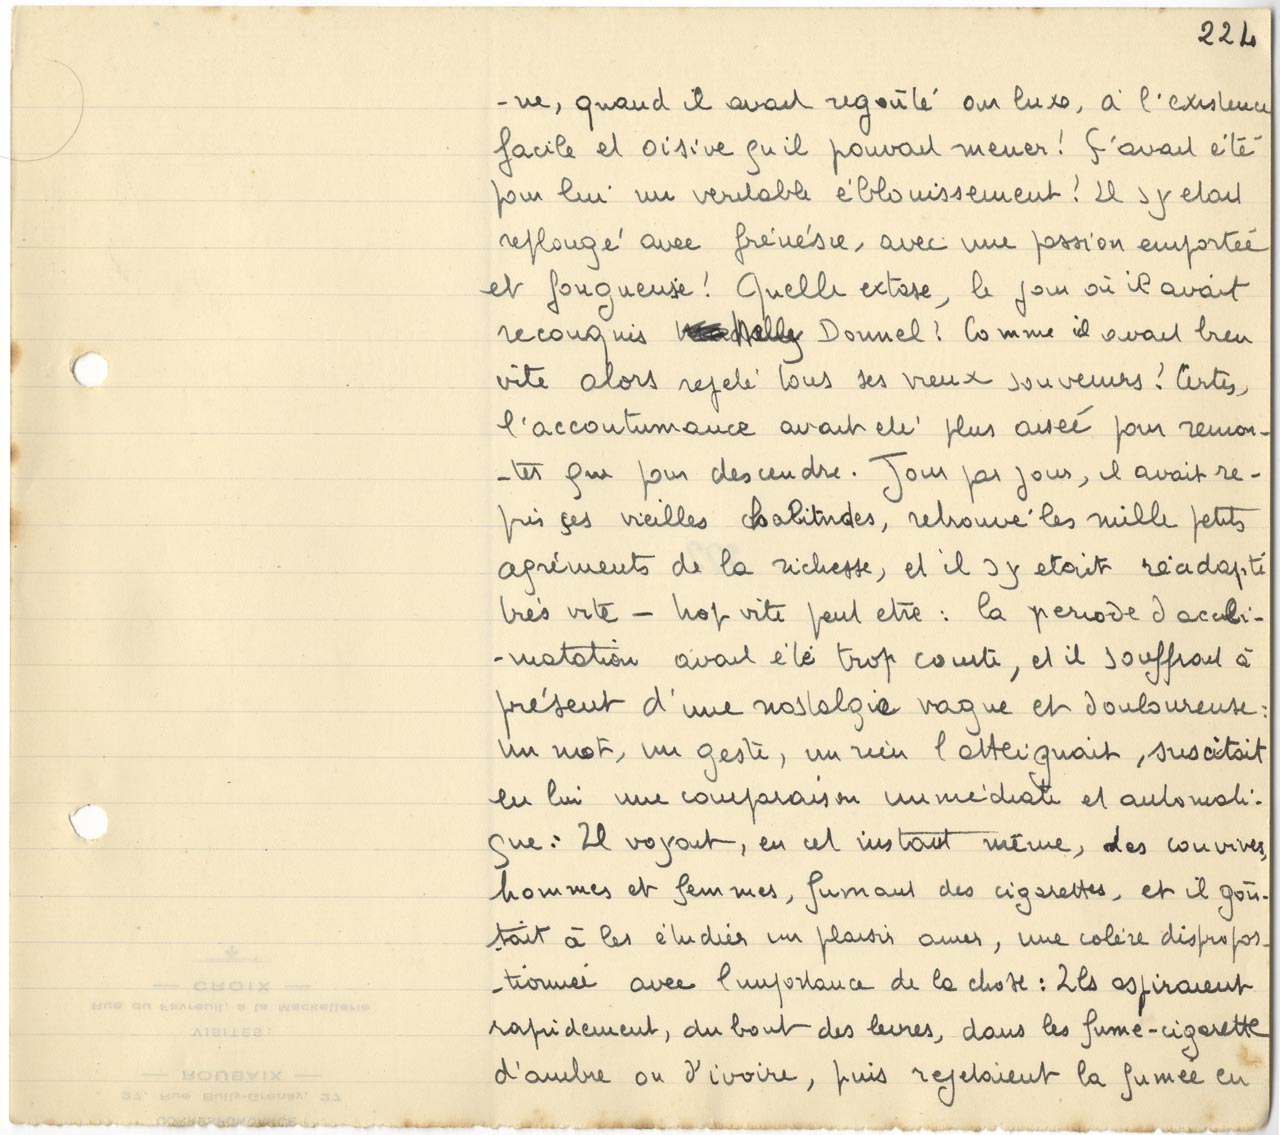 224
-ne, quand il avait regoûté au luxe, à l'existence
facile et oisive qu'il pouvait mener! Ç'avait été
pour lui un véritable éblouissement! Il s'y était
replongé avec frénésie, avec une passion emportée
et fougueuse! Quelle extase, le jour où il avait
reconquis Nelly Donnel! Comme il avait bien
vite alors rejeté tous ses vieux souvenirs! Certes,
l'accoutumance avait été plus aisée pour remon-
-ter que pour descendre. Jour par jour, il avait re-
pris ses vieilles habitudes, retrouvé les mille petits
agréments de la richesse, et il s'y était réadapté
très vite - trop vite peut être : la période d'accli-
-matation avait été trop courte, et il souffrait à
présent d'une nostalgie vague et douloureuse:
un mot, un geste, un rien l'atteignait, suscitait
en lui une comparaison immédiate et automati-
que: Il voyait, en cet instant même, des convives,
hommes et femmes, fumant des cigarettes, et il goû-
-tait à les étudier un plaisir amer, une colère dispropor-
-tionnée avec l'importance de la chose: Ils aspiraient
rapidement, du bout des lèvres, dans les fume-cigarette
d'ambre ou d'ivoire, puis rejetaient la fumée en
CROIX
Rue du Favreuil, à la Mackellerie
VISITES:
ROUBAIX
27, Rue Bully-Grenay, 27
CORRESPONDANCE